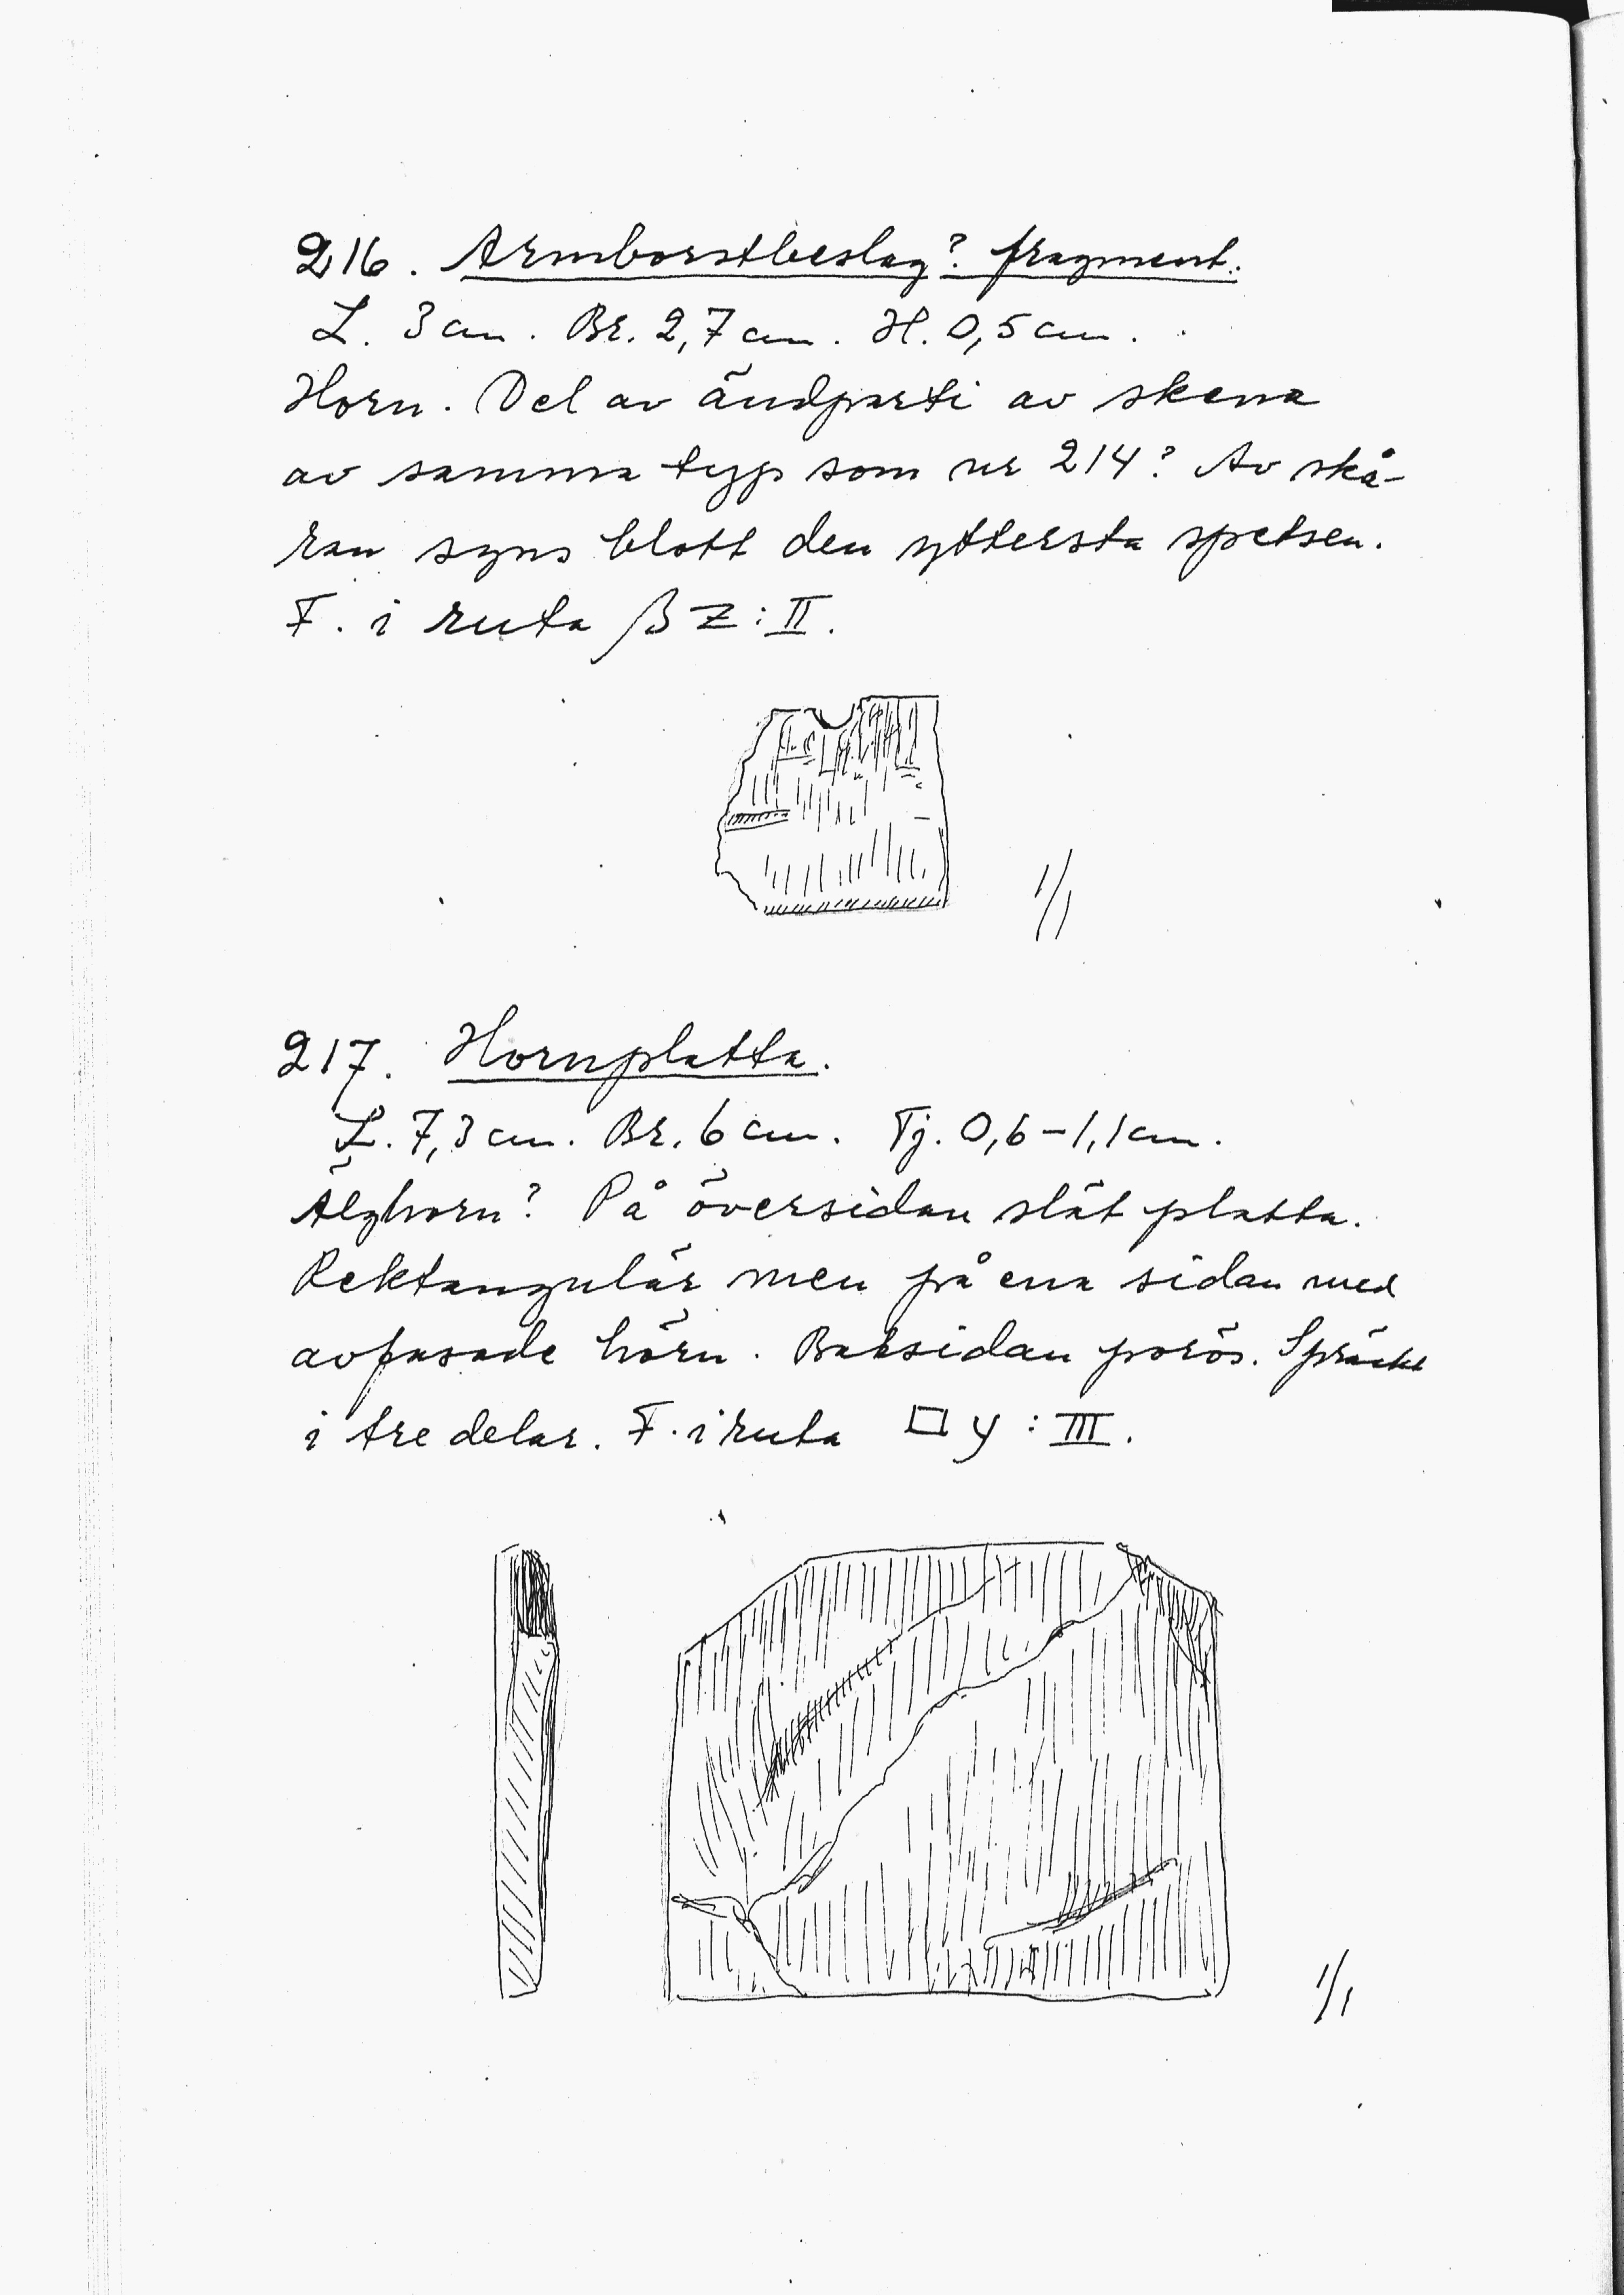 216. Armborstbeslag? fragment.
L. 3 cm. Br. 2,7 cm. H. 0,5 cm.
Horn. Del av ändparti av skena
av samma typ som nr 214? Av skå-
ran syns blott den yttersta spetsen.
F. i ruta β Z : II.
1/1
217. Hornplatta.
L. 7,3 cm. Br. 6 cm. Tj. 0,6-1,1 cm.
Älghorn? På översidan slät platta.
Rektangulär men på ena sidan med
avfasade hörn. Baksidan porös. Spräckt
i tre delar. F. i ruta □ y : III.
1/1